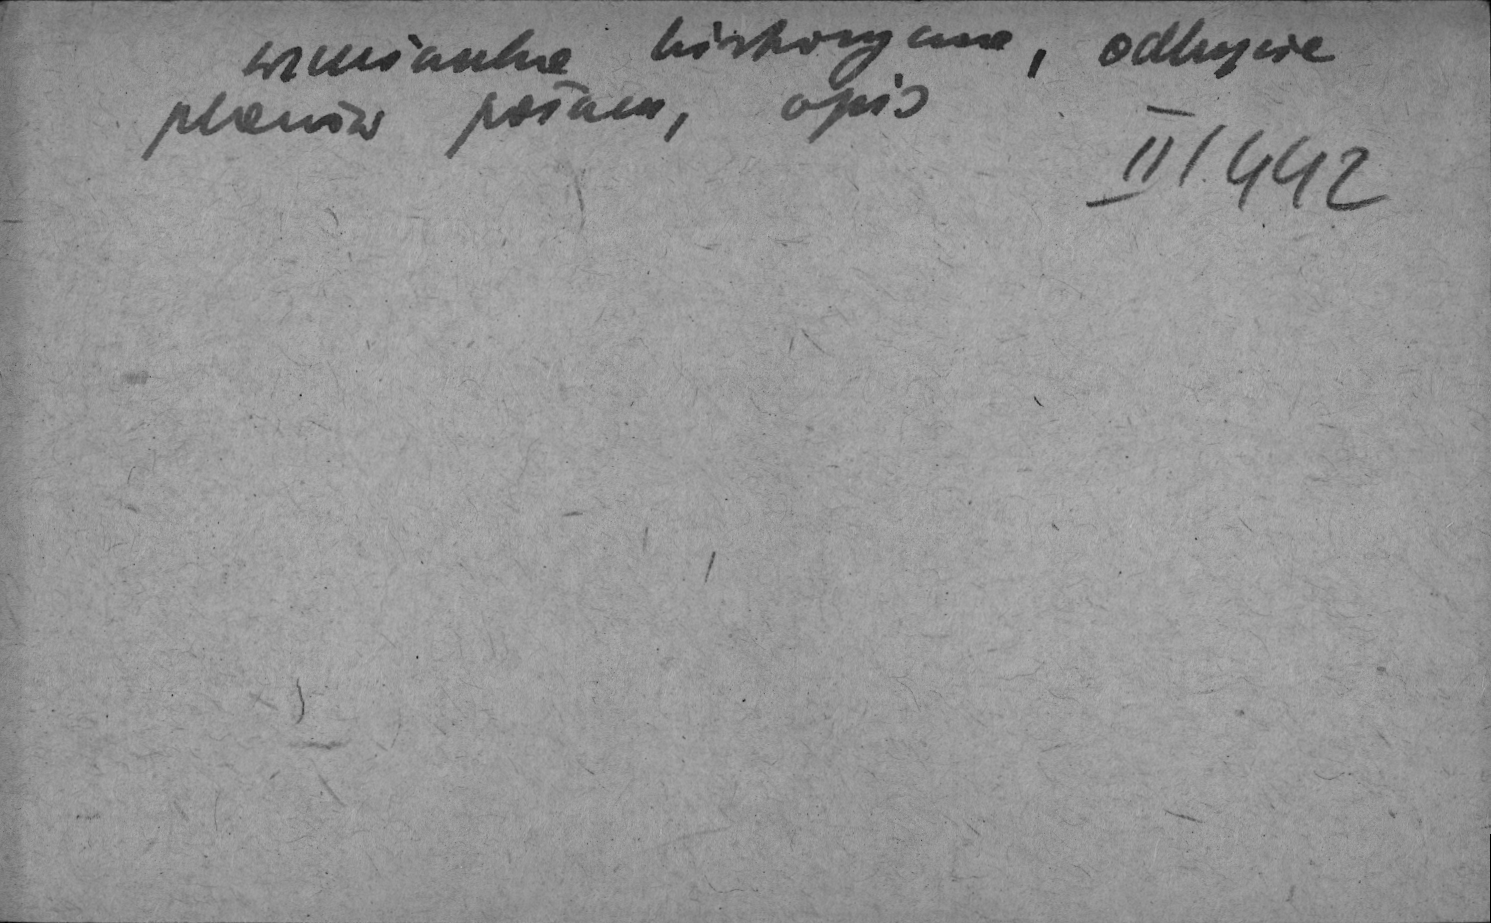 wzmianka historyczna, odkrycie
planów pałacu, opis
II/442